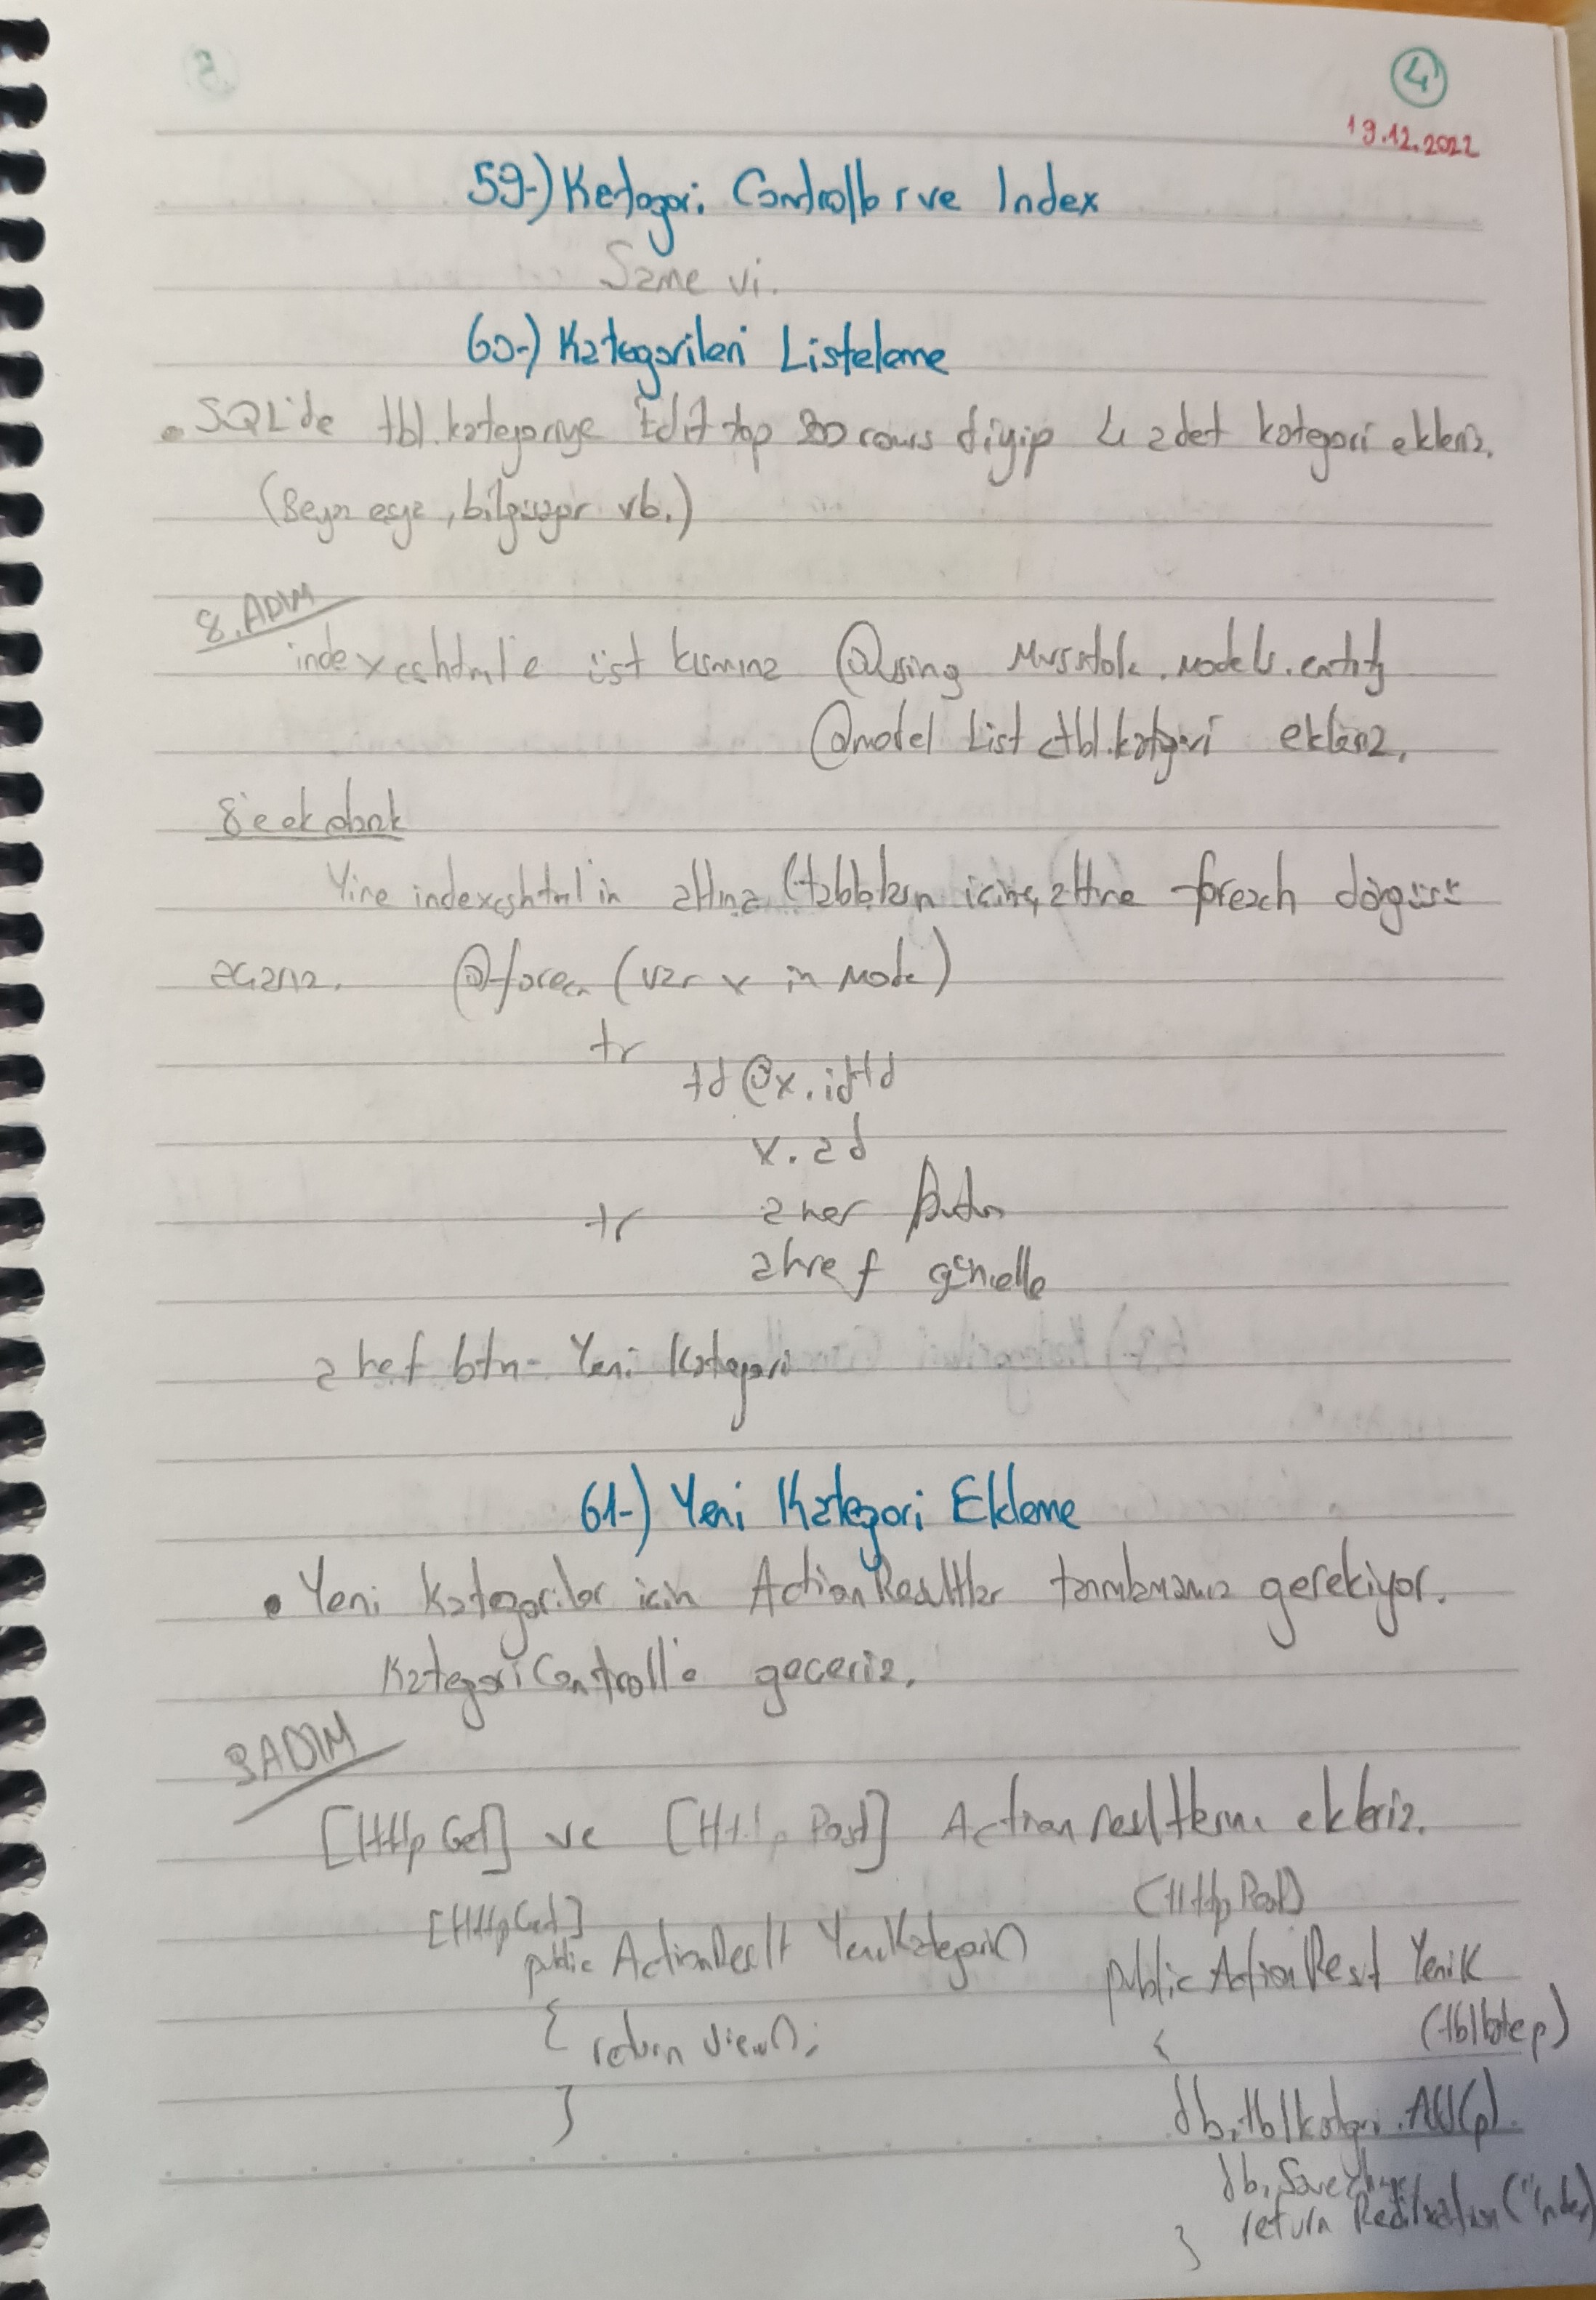 4
19.12.2022
59-) Kategori Controller ve Index
Same vi.
60-) Kategorileri Listeleme
• SQL'de tbl.kategoriye Edit top 200 rows diyip 4 adet kategori ekleriz.
(Beyaz eşya, bilgisayar vb.)
8. ADIM
index.cshtml'e üst kısmına @using MvcStok.Models.entity
@model List <tbl.kategori ekleriz.
8'e ek olarak
Yine index.cshtml'in altına (tabloların içine, altına foreach döngüsü
açarız. @foreac (var x in Mode)
tr
td @x.id td
x.ad
tr a href Button
a href güncelle
a href btn- Yeni Kategori
61-) Yeni Kategori Ekleme
• Yeni Kategoriler için ActionResultlar tanımlamamız gerekiyor.
KategoriControll'e geçeriz.
9.ADIM
[HttpGet] ve [HttpPost] Actionresultlarını ekleriz.
[HttpGet]
public ActionResult YeniKategori()
{
return view();
}
(HttpPost)
public ActionResut YeniK
(tblkate p)
{
db.tblkategori.Add(p).
db.SaveChange
return Redirtoaction("index)
}